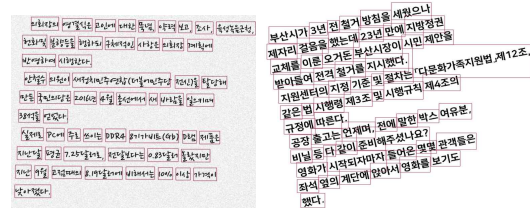 의회장의 영결식은 고인에 대한 묵념, 약력 보고, 조사, 육성녹음근청,
헌화및 분향순을 협의되 구체적인 사항은 의회장 계획에
반영하여 시행한다.
안철수 의원이 새정치민주연합(더불어민주당 전신)을 탈당해
만든 국민의당은 2016년 4월 총선에서 새 바람을 일으키며
38석을 얻었다.
실제로 PC에 주로 쓰이는 DDR4 8기가비트(Gb) D램 제품은
지난달 평균 7.25달러로, 전달보다는 0.83달러 올랐지만
지난 9월 고점때의 8.19달러에 비해서는 10% 이상 가격이
낮아졌다.
부산시가 3년 전 철거 방침을 세웠으나
제자리 걸음을 했는데 23년 만에 지방정권
교체를 이룬 오거돈 부산시장이 시민 제안을
받아들여 전격 철거를 지시했다.
지원센터의 지정 기준 및 절차는 「다문화가족지원법」제12조,
같은 법 시행령 제3조 및 시행규칙 제4조의
규정에 따른다.
공장 출고는 언제며, 전에 말한 박스 여유분,
비닐 등 다 같이 준비해주셨나요?
영화가 시작되자마자 들어온 몇몇 관객들은
좌석 옆의 계단에 앉아서 영화를 보기도
했다.